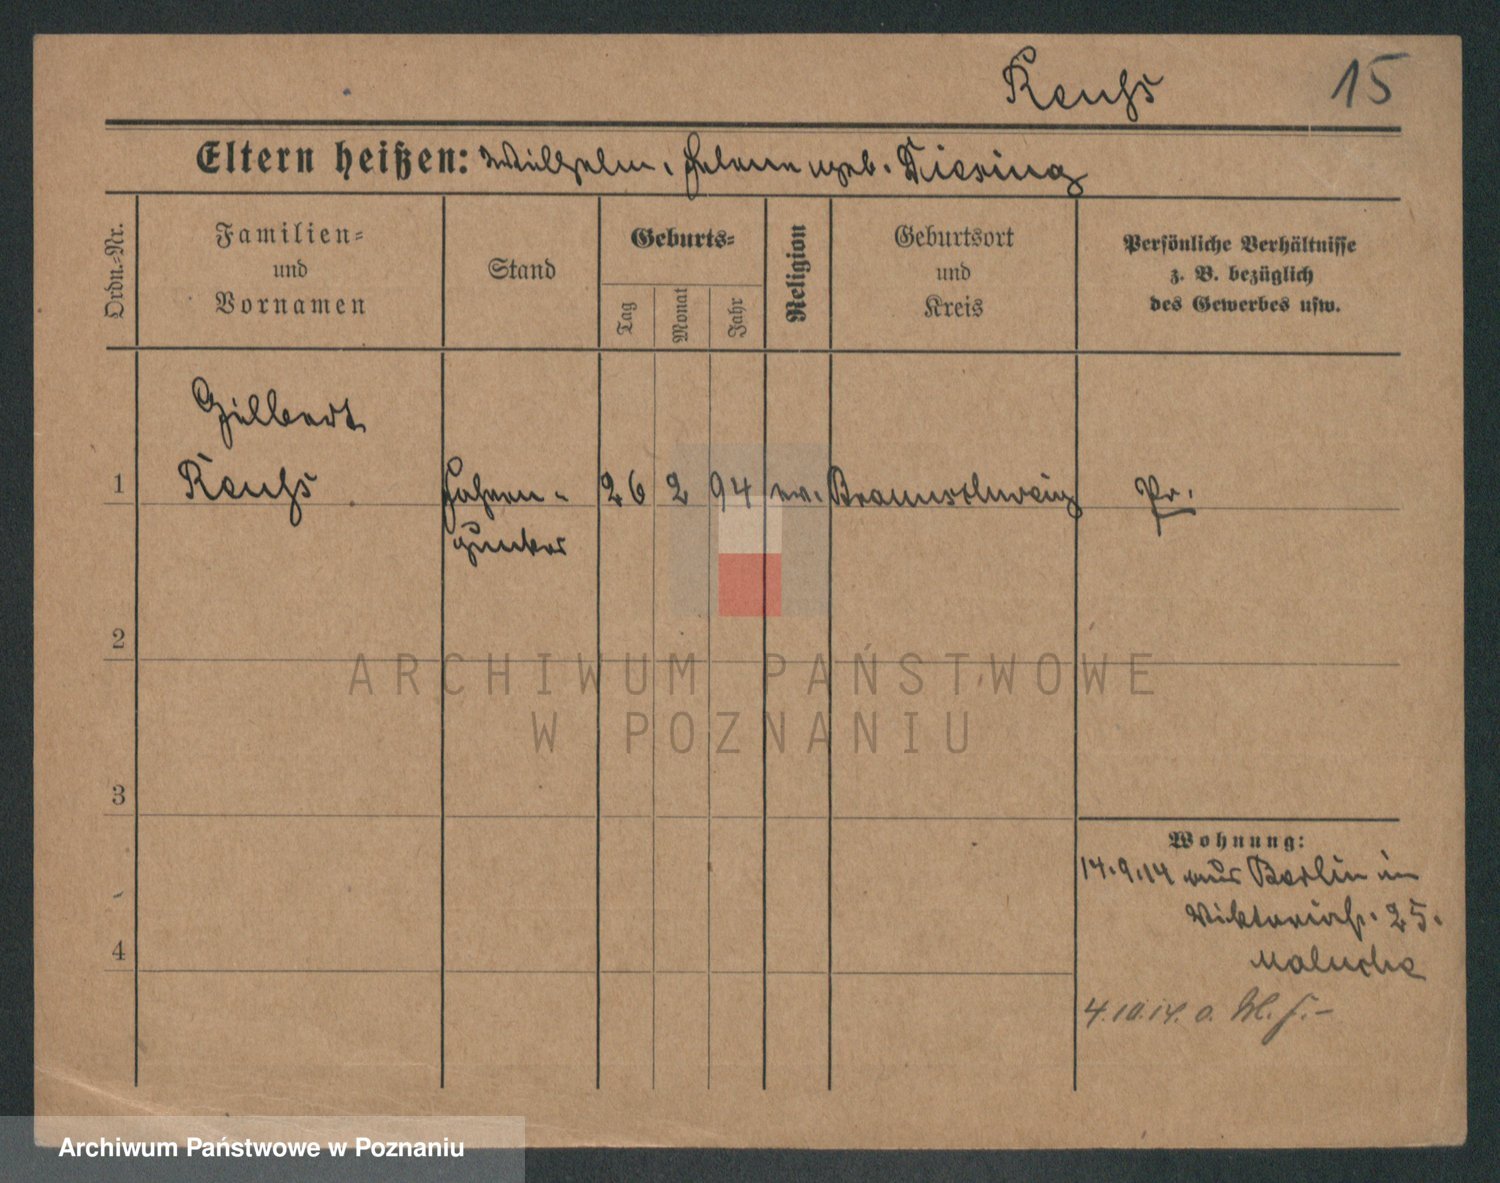 Reuß 15
Eltern heißen: Wilhelm, Helene geb. Diesing
Ordn.-Nr.
Familien-
und
Vornamen
Stand
Geburts-
Tag
Monat
Jahr
Religion
Geburtsort
und
Kreis
Persönliche Verhältnisse
z. B. bezüglich
des Gewerbes usw.
Gilbert
1 Reuß Fahnen- 26 2 94 ev. Braunschweig Pr.
junker
2
3
4
Wohnung:
14.9.14 aus Berlin in
Viktoriastr. 25.
4.10.14. o.
ARCHIWUM PAŃSTWOWE
W POZNANIU
Archiwum Państwowe w Poznaniu